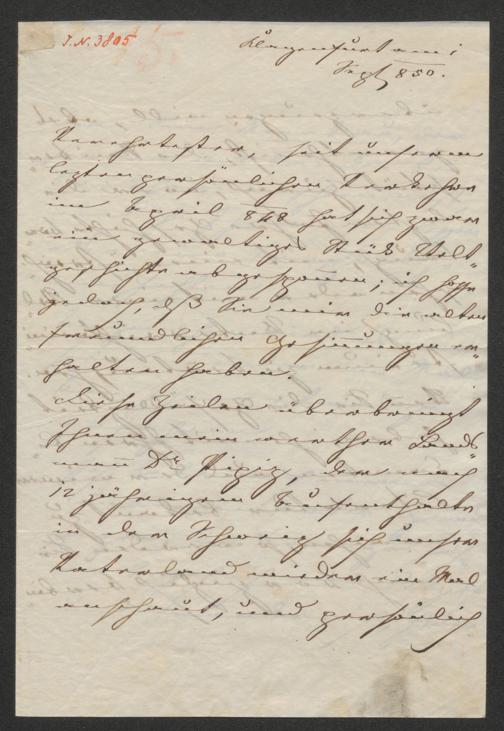 I.N. 3805
Klagenfurt am 1
Sept 850.
Verehrtester, seit unserm
letzten persönlichen Verkehre
im April 848 hat sich zwar
ein gewaltiges Stük Welt"
geschichte abgesponnen; ich hoffe
jedoch, daß Sie mir die alten
freundlichen Gesinnungen er"
halten haben.
Diese Zeilen überbringt
Ihnen mein werther Lands"
mann Dr. Pipiz, der nach
12 jährigem Aufenthalte
in der Schweiz sich unser
Vaterland wieder ein Mal
anschaut, und persönlich